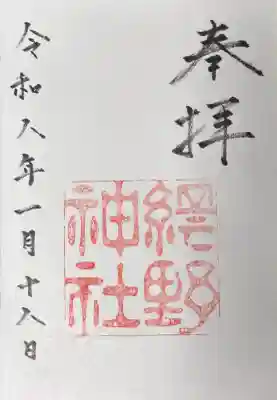 奉拝
野
神社
令和八年一月十八日